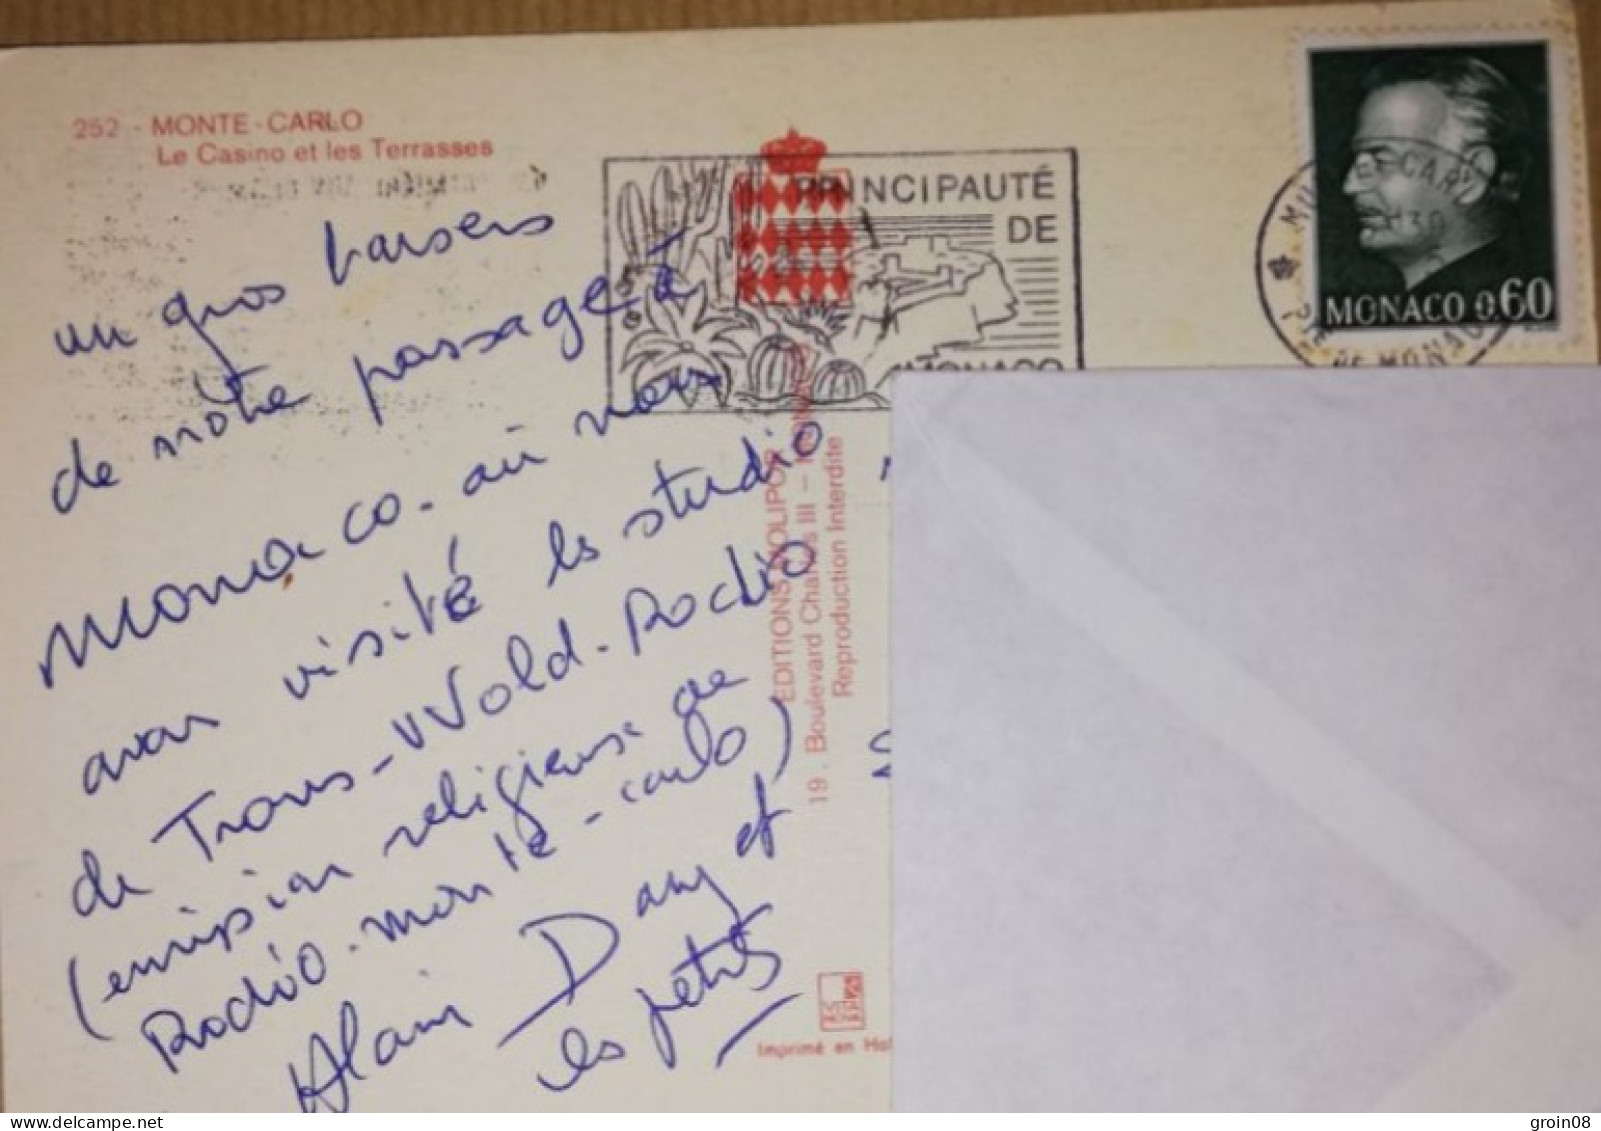 252 - MONTE-CARLO
Le Casino et les Terrasses
PRINCIPAUTÉ
DE
MONACO
MONACO 0.60
DE MONACO
un gros baisers
de nôtre passage à
Monaco. où nous
avons visité les studio
de Trans-Wold-Radio
(émission religieuse de
Radio-monte-carlo)
Alain Dany et
les petits
EDITIONS MOLIPOR
19. Boulevard Charles III -
Reproduction Interdite
Imprimé en
groin08